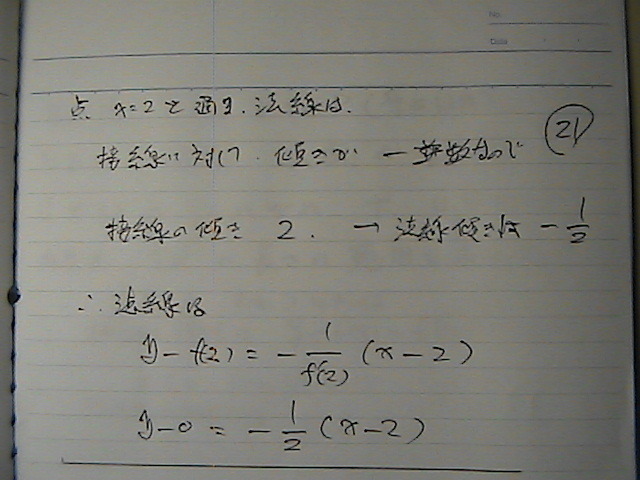 No.
Date
点 x=2を通る、法線は、
(21)
接線に対して、傾きが -逆数なので
接線の傾き 2. → 法線傾きは -1/2
∴ 法線は
y-f(2) = -1/f'(2) (x-2)
y-0 = -1/2 (x-2)